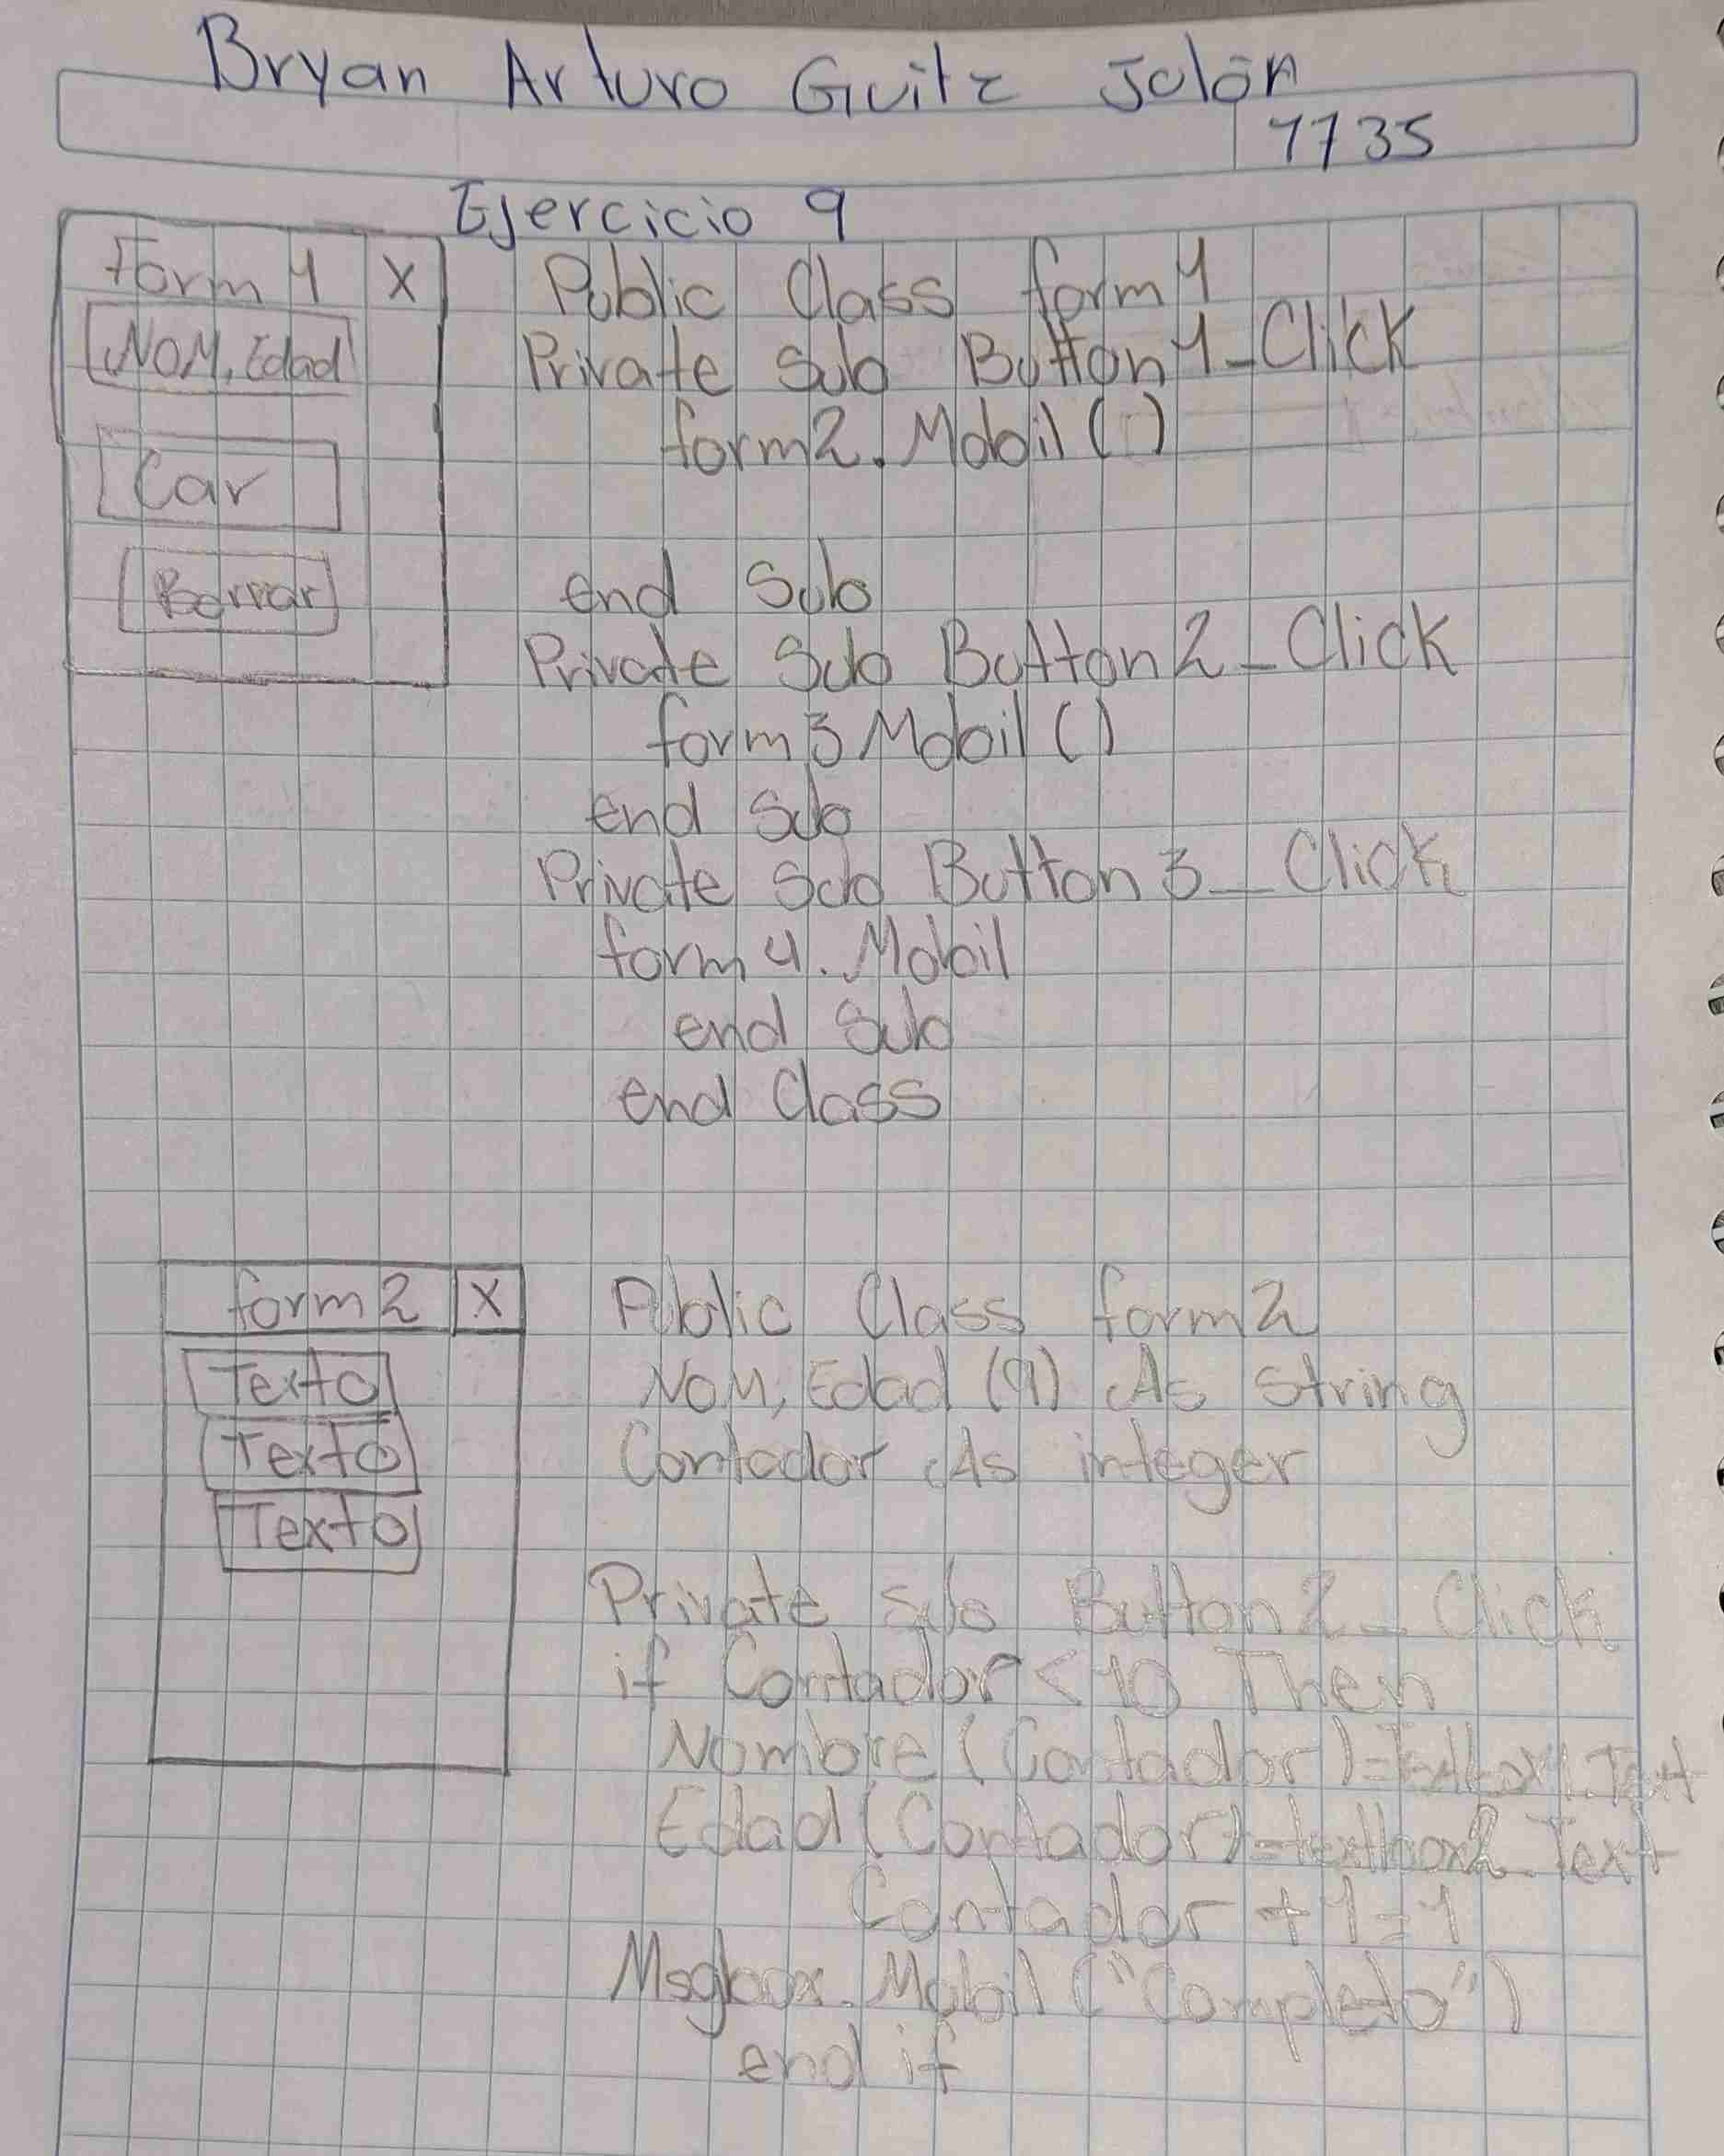 Bryan Arturo Guitz Jolón
7735
Ejercicio 9
Form 1 X
NOM, Edad
Car
Borrar
Public Class form 1
Private Sub Button 1_Click
form2. Mobil ( )
end Sub
Private Sub Button 2_Click
form 3 Mobil ( )
end Sub
Private Sub Button 3_Click
form 4. Mobil
end Sub
end Class
form 2 X
Texto
Texto
Texto
Public Class form 2
NOM, Edad (9) As String
Contador As integer
Private Sub Button 2_Click
if Contador < 10 Then
Nombre (Contador) = Textbox1.Text
Edad (Contador) = textbox2.Text
Contador + 1 = 1
Msgbox. Mobil ("Completo")
end if